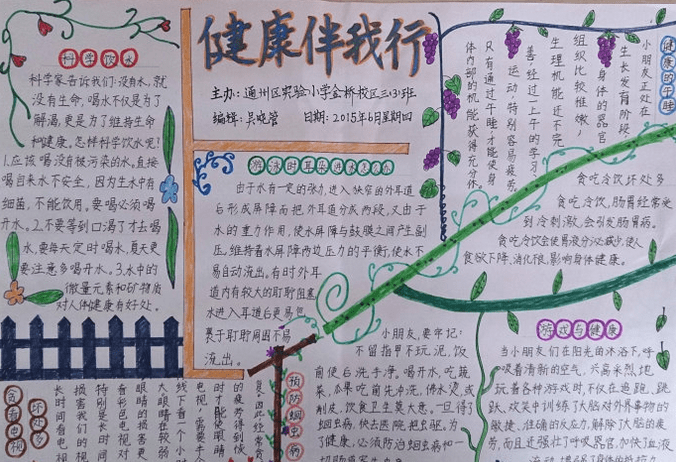 健康伴我行
主办：通州区实验小学金桥校区三(3)班
编辑：吴晓管 日期：2015年6月星期四
科学饮水
科学家告诉我们：没有水，就
没有生命，喝水不仅是为了
解渴，更是为了维持生命
和健康，怎样科学饮水呢？
1.应该喝没有被污染的水，直接
喝自来水不安全，因为生水中有
细菌，不能饮用。要喝必须喝
开水。2.不要等到口渴了才去喝
水，要每天定时喝水，夏天更
要注意多喝开水。3.水中的
微量元素和矿物质
对人体健康有好处。
游泳时耳朵进水怎么办
由于水有一定的张力，进入狭窄的外耳道
后形成屏障而把外耳道分成两段，又由于
水的重力作用，使水屏障与鼓膜之间产生副
压，维持着水屏障两边压力的平衡，使水不
易自动流出。有时外耳
道内有较大的耵聍阻塞
水进入耳道后更易包
裹于耵聍周围不易
流出。
健康的午睡
小朋友正处在
生长发育阶段
身体的器官
组织比较稚嫩，
生理机能还不完
善，经过一上午的学习
运动，特别容易疲劳，
只有通过午睡才能使身
体内部的机能获得充分休
贪吃冷饮坏处多
贪吃冷饮，肠胃经常受
到冷刺激，会引发肠胃病。
贪吃冷饮会使胃液分泌减少，使人
食欲下降，消化很，影响身体健康。
游戏与健康
当小朋友们在阳光的沐浴下，呼
吸着清新的空气，兴高采烈地
玩着各种游戏时，不仅在追跑、跳
跃、欢笑中训练了大脑对外界事物的
敏捷、准确的反应力，解除了大脑的疲
劳，而且还强壮了呼吸器官，加快了血液
预防蛔虫病
小朋友，要牢记：
不留指甲不玩泥，饭
前便后洗手净。喝开水，吃蔬
菜，瓜果吃前先冲洗，沸水烫，或
削皮，饮食卫生莫大意。一旦得了
蛔虫病，快去医院把虫驱。为
了健康，必须防治蛔虫病和一
贪看电视
坏处多
长时间看电视
损害我们的视
特别是长时间
看彩色电视对
眼睛的损害更
大眼睛在较弱
线下看一个小时
电视，需要半
时才能使眼睛
的疲劳得到恢
复，因此经常贪